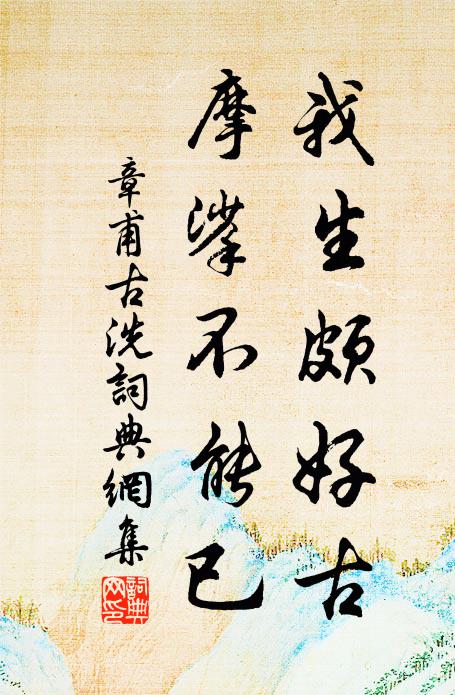 我生頗好古
摩挲不能已
章甫古洗詞典網集
詞典
网印